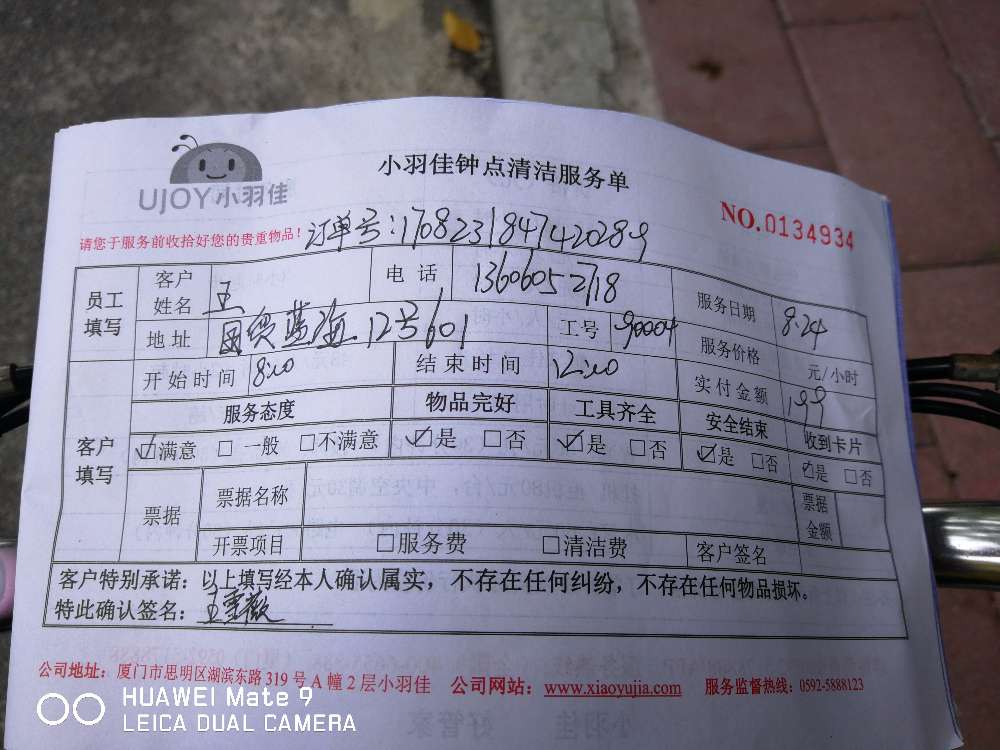 UJOY小羽佳
小羽佳钟点清洁服务单
NO.0134934
请您于服务前收拾好您的贵重物品！ 订单号：1708231847420289
员工填写 客户姓名 王 电话 13606052718 服务日期 8.24
地址 国贸蓝海12号601 工号 90004 服务价格 元/小时
开始时间 8:00 结束时间 12:00 实付金额 199
客户填写 服务态度 物品完好 工具齐全 安全结束 收到卡片
☑满意 □一般 □不满意 ☑是 □否 ☑是 □否 ☑是 □否 ☑是 □否
票据 票据名称 票据金额
开票项目 □服务费 □清洁费 客户签名
客户特别承诺：以上填写经本人确认属实，不存在任何纠纷，不存在任何物品损坏。
特此确认签名：王雪薇
公司地址：厦门市思明区湖滨东路319号A幢2层小羽佳 公司网站：www.xiaoyujia.com 服务监督热线：0592-5888123
HUAWEI Mate 9
LEICA DUAL CAMERA